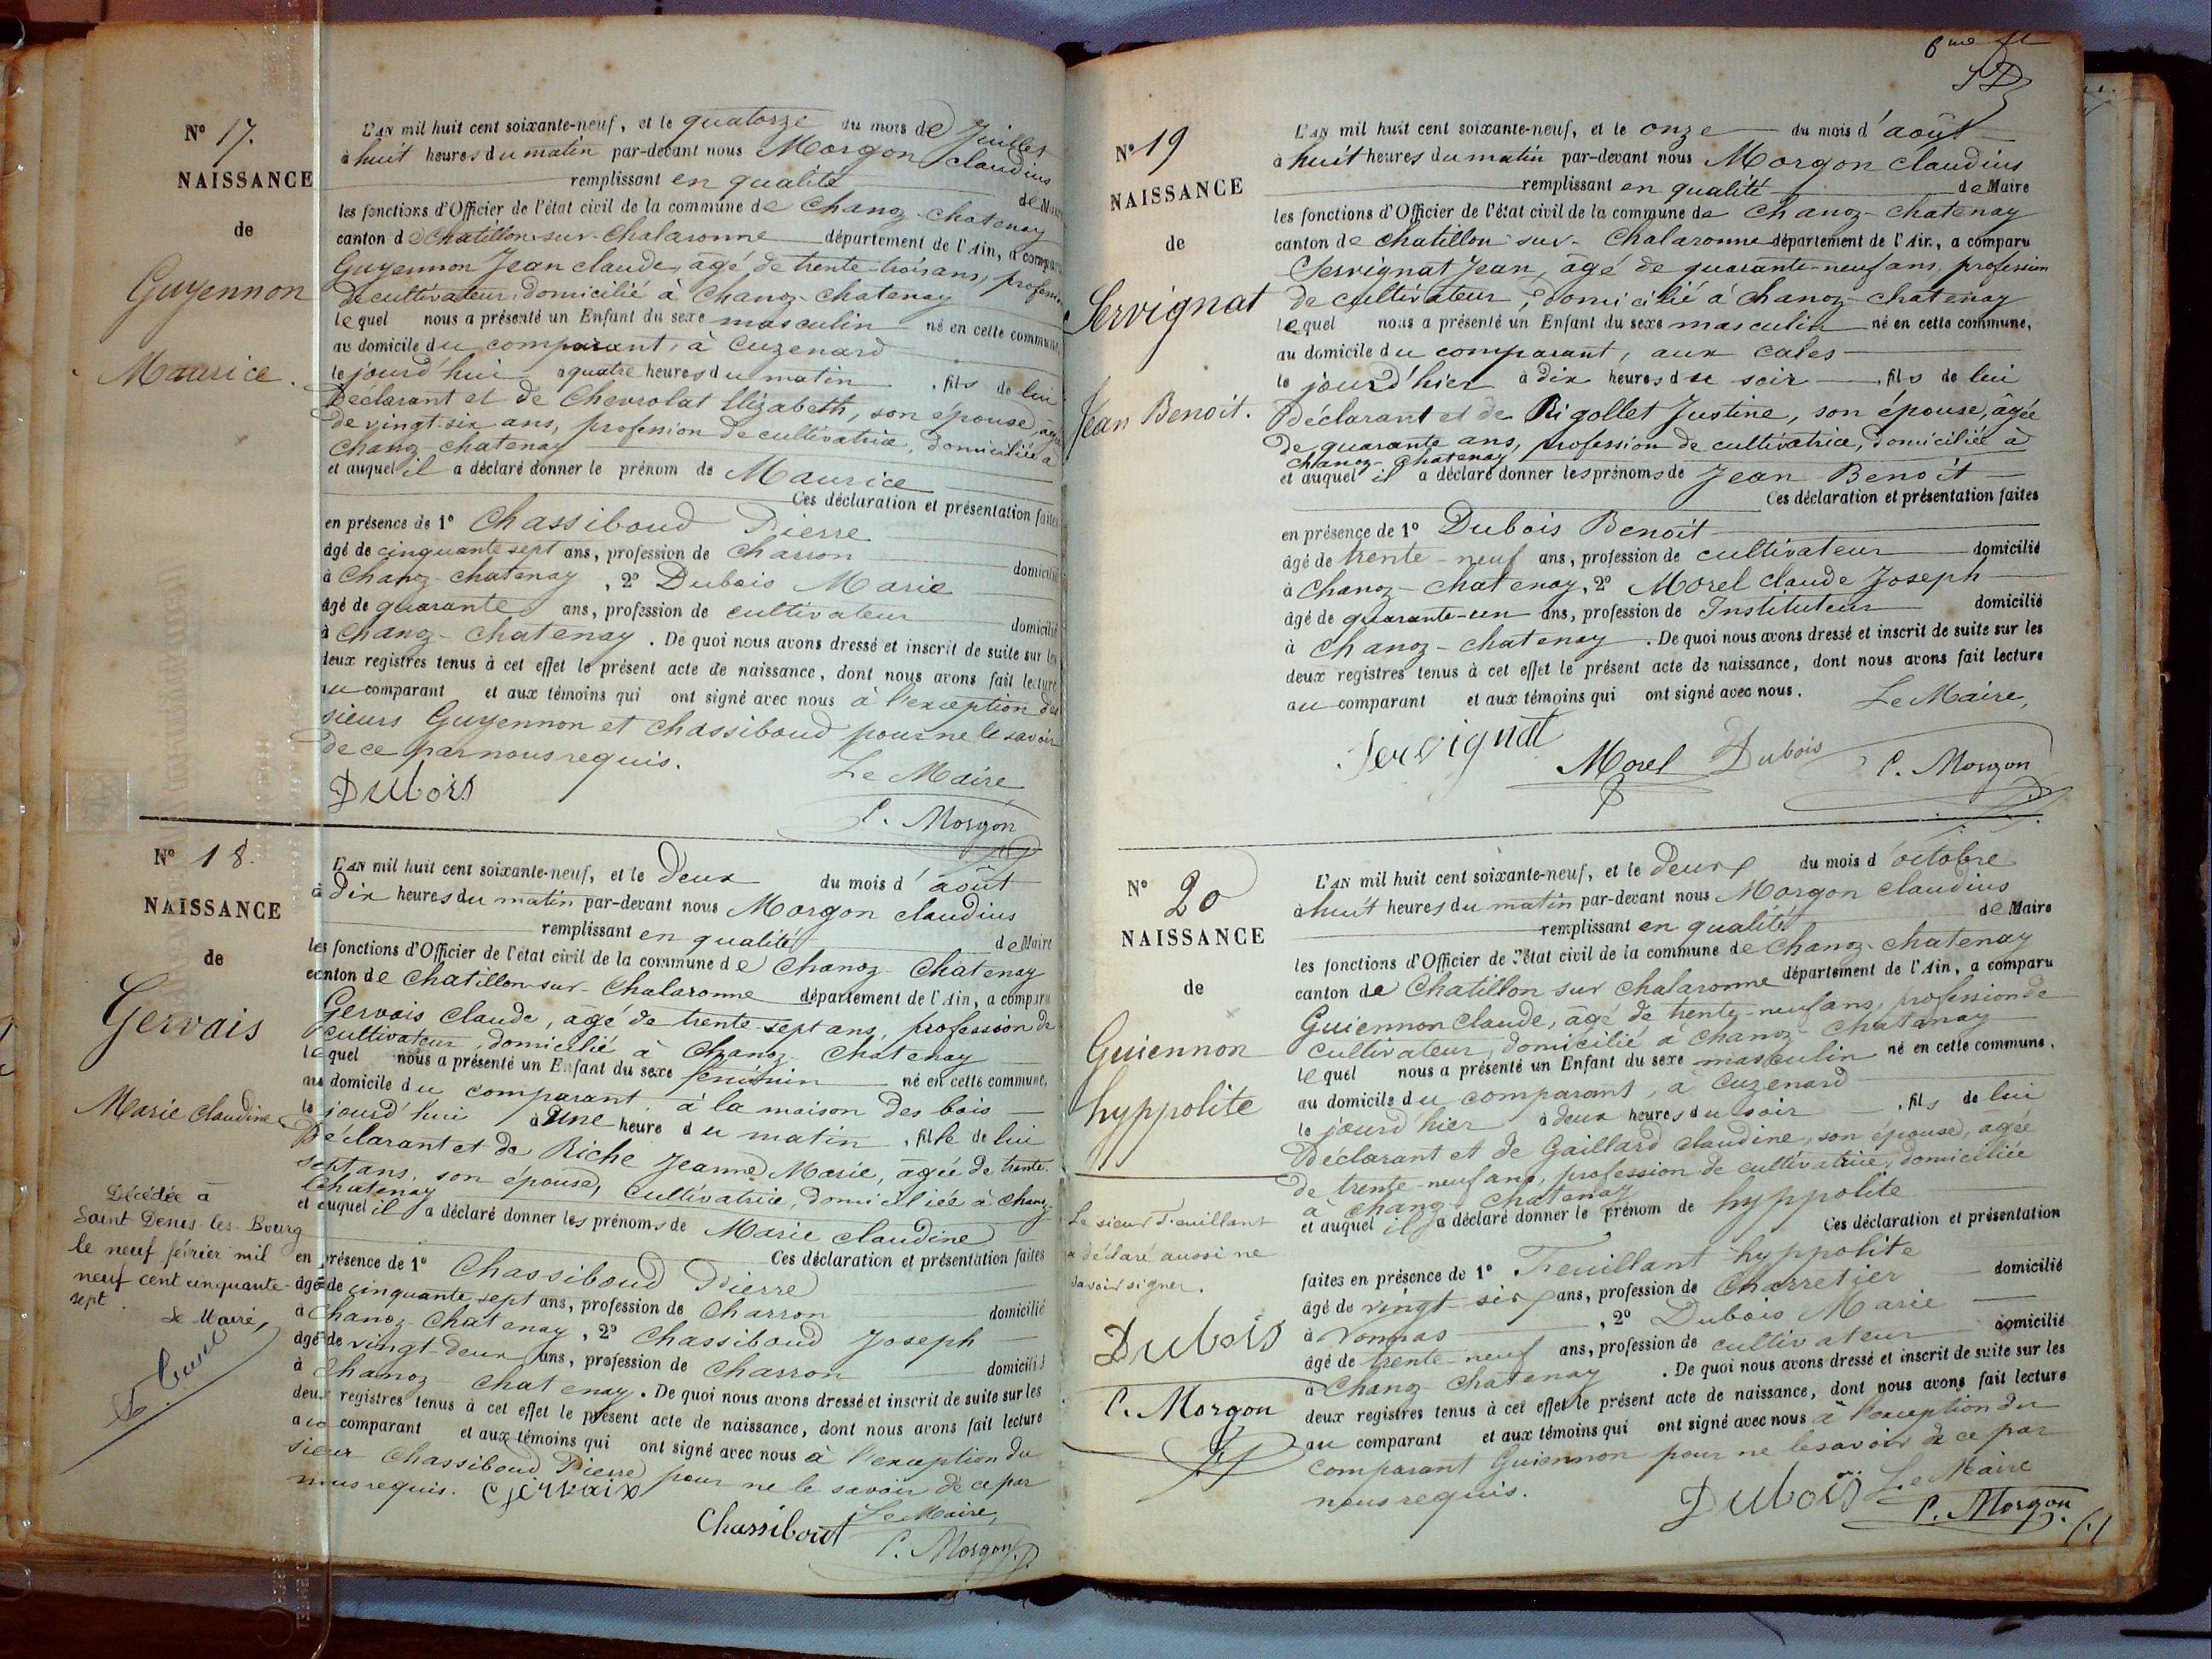 N° 17.
NAISSANCE
de
Guyennon
Maurice.
L'AN mil huit cent soixante-neuf, et le quatorze du mois de Juillet
à huit heures du matin par-devant nous Morgon claudius
remplissant en qualité de Maire
les fonctions d'Officier de l'état civil de la commune de Chanoz-Chatenay
canton de Chatillon-sur-Chalaronne département de l'Ain, a comparu
Guyennon Jean claude, âgé de trente-trois ans, profession
de cultivateur, domicilié à Chanoz-Chatenay
lequel nous a présenté un Enfant du sexe masculin né en cette commune,
au domicile du comparant, à Cuzenard
le jourd'hui à quatre heures du matin, fils de lui
Déclarant et de Chevrolat Elizabeth, son épouse, agée
de vingt-six ans, profession de cultivatrice, domiciliée à
Chanoz-chatenay
et auquel il a déclaré donner le prénom de Maurice
Ces déclaration et présentation faites
en présence de 1° Chassiboud Pierre
âgé de cinquante sept ans, profession de Charron domicilié
à Chanoz-chatenay, 2° Dubois Marie
âgé de quarante ans, profession de cultivateur domicilié
à Chanoz-Chatenay. De quoi nous avons dressé et inscrit de suite sur les
deux registres tenus à cet effet le présent acte de naissance, dont nous avons fait lecture
au comparant et aux témoins qui ont signé avec nous à l'exception des
sieurs Guyennon et Chassiboud pour ne le savoir
de ce par nous requis.
Le Maire
Dubois
C. Morgon
N° 18.
NAISSANCE
de
Gervais
Marie Claudine
Décédée à
Saint Denis-les-Bourg
le neuf février mil
neuf cent cinquante-
sept.
Le Maire,
L'AN mil huit cent soixante-neuf, et le Deux du mois d'août
à Dix heures du matin par-devant nous Morgon claudius
remplissant en qualité de Maire
les fonctions d'Officier de l'état civil de la commune de Chanoz-Chatenay
canton de Chatillon-sur-Chalaronne département de l'Ain, a comparu
Gervais Claude, âgé de trente-sept ans, profession de
cultivateur, domicilié à Chanoz-Chatenay
lequel nous a présenté un Enfant du sexe féminin né en cette commune,
au domicile du comparant, à la maison Des bois
le jourd'hui à une heure du matin, fille de lui
Déclarant et de Riche Jeanne Marie, agée de trente-
sept ans, son épouse, cultivatrice, domiciliée à Chanoz-
Chatenay
et auquel il a déclaré donner les prénoms de Marie claudine
Ces déclaration et présentation faites
en présence de 1° Chassiboud Pierre
âgé de cinquante sept ans, profession de Charron domicilié
à Chanoz-Chatenay, 2° Chassiboud Joseph
âgé de vingt-deux ans, profession de Charron domicilié
à Chanoz-Chatenay. De quoi nous avons dressé et inscrit de suite sur les
deux registres tenus à cet effet le présent acte de naissance, dont nous avons fait lecture
au comparant et aux témoins qui ont signé avec nous à l'exception du
sieur Chassiboud Pierre pour ne le savoir de ce par
nous requis. Gervaix
Le Maire,
Chassibout
C. Morgon
6me
N° 19
NAISSANCE
de
Servignat
Jean Benoit.
L'AN mil huit cent soixante-neuf, et le onze du mois d'août
à huit heures du matin par-devant nous Morgon claudius
remplissant en qualité de Maire
les fonctions d'Officier de l'état civil de la commune de Chanoz-Chatenay
canton de chatillon-sur-Chalaronne département de l'Ain, a comparu
Servignat Jean, âgé de quarante-neuf ans, profession
de cultivateur, domicilié à Chanoz-chatenay
lequel nous a présenté un Enfant du sexe masculin né en cette commune,
au domicile du comparant, aux cales
le jourd'hier à dix heures du soir, fils de lui
Déclarant et de Rigollet Justine, son épouse, âgée
de quarante ans, profession de cultivatrice, domiciliée à
Chanoz-Chatenay
et auquel il a déclaré donner les prénoms de Jean Benoit
Ces déclaration et présentation faites
en présence de 1° Dubois Benoit
âgé de trente-neuf ans, profession de cultivateur domicilié
à Chanoz-chatenay, 2° Morel claude Joseph
âgé de quarante-un ans, profession de Instituteur domicilié
à Chanoz-chatenay. De quoi nous avons dressé et inscrit de suite sur les
deux registres tenus à cet effet le présent acte de naissance, dont nous avons fait lecture
au comparant et aux témoins qui ont signé avec nous.
Le Maire,
Servignat
Morel
Dubois
C. Morgon
N° 20
NAISSANCE
de
Guiennon
hyppolite
Le sieur Feuillant
a déclaré aussi ne
savoir signer.
Dubois
C. Morgon
L'AN mil huit cent soixante-neuf, et le Deux du mois d'octobre
à huit heures du matin par-devant nous Morgon claudius
remplissant en qualité de Maire
les fonctions d'Officier de l'état civil de la commune de Chanoz-chatenay
canton de Chatillon sur Chalaronne département de l'Ain, a comparu
Guiennon Claude, âgé de trente-neuf ans, profession de
cultivateur, domicilié à Chanoz-Chatenay
lequel nous a présenté un Enfant du sexe masculin né en cette commune,
au domicile du comparant, à Cuzenard
le jourd'hier à deux heures du soir, fils de lui
Déclarant et de Gaillard claudine, son épouse, agée
de trente-neuf ans, profession de cultivatrice, domiciliée
à Chanoz-Chatenay
et auquel il a déclaré donner le prénom de hyppolite
Ces déclaration et présentation
faites en présence de 1° Feuillant hyppolite
âgé de vingt-six ans, profession de Charretier domicilié
à Vonnas, 2° Dubois Marie
âgé de trente-neuf ans, profession de cultivateur domicilié
à Chanoz Chatenay. De quoi nous avons dressé et inscrit de suite sur les
deux registres tenus à cet effet le présent acte de naissance, dont nous avons fait lecture
au comparant et aux témoins qui ont signé avec nous à l'exception du
comparant Guiennon pour ne le savoir de ce par
nous requis.
Le Maire
Dubois
C. Morgon